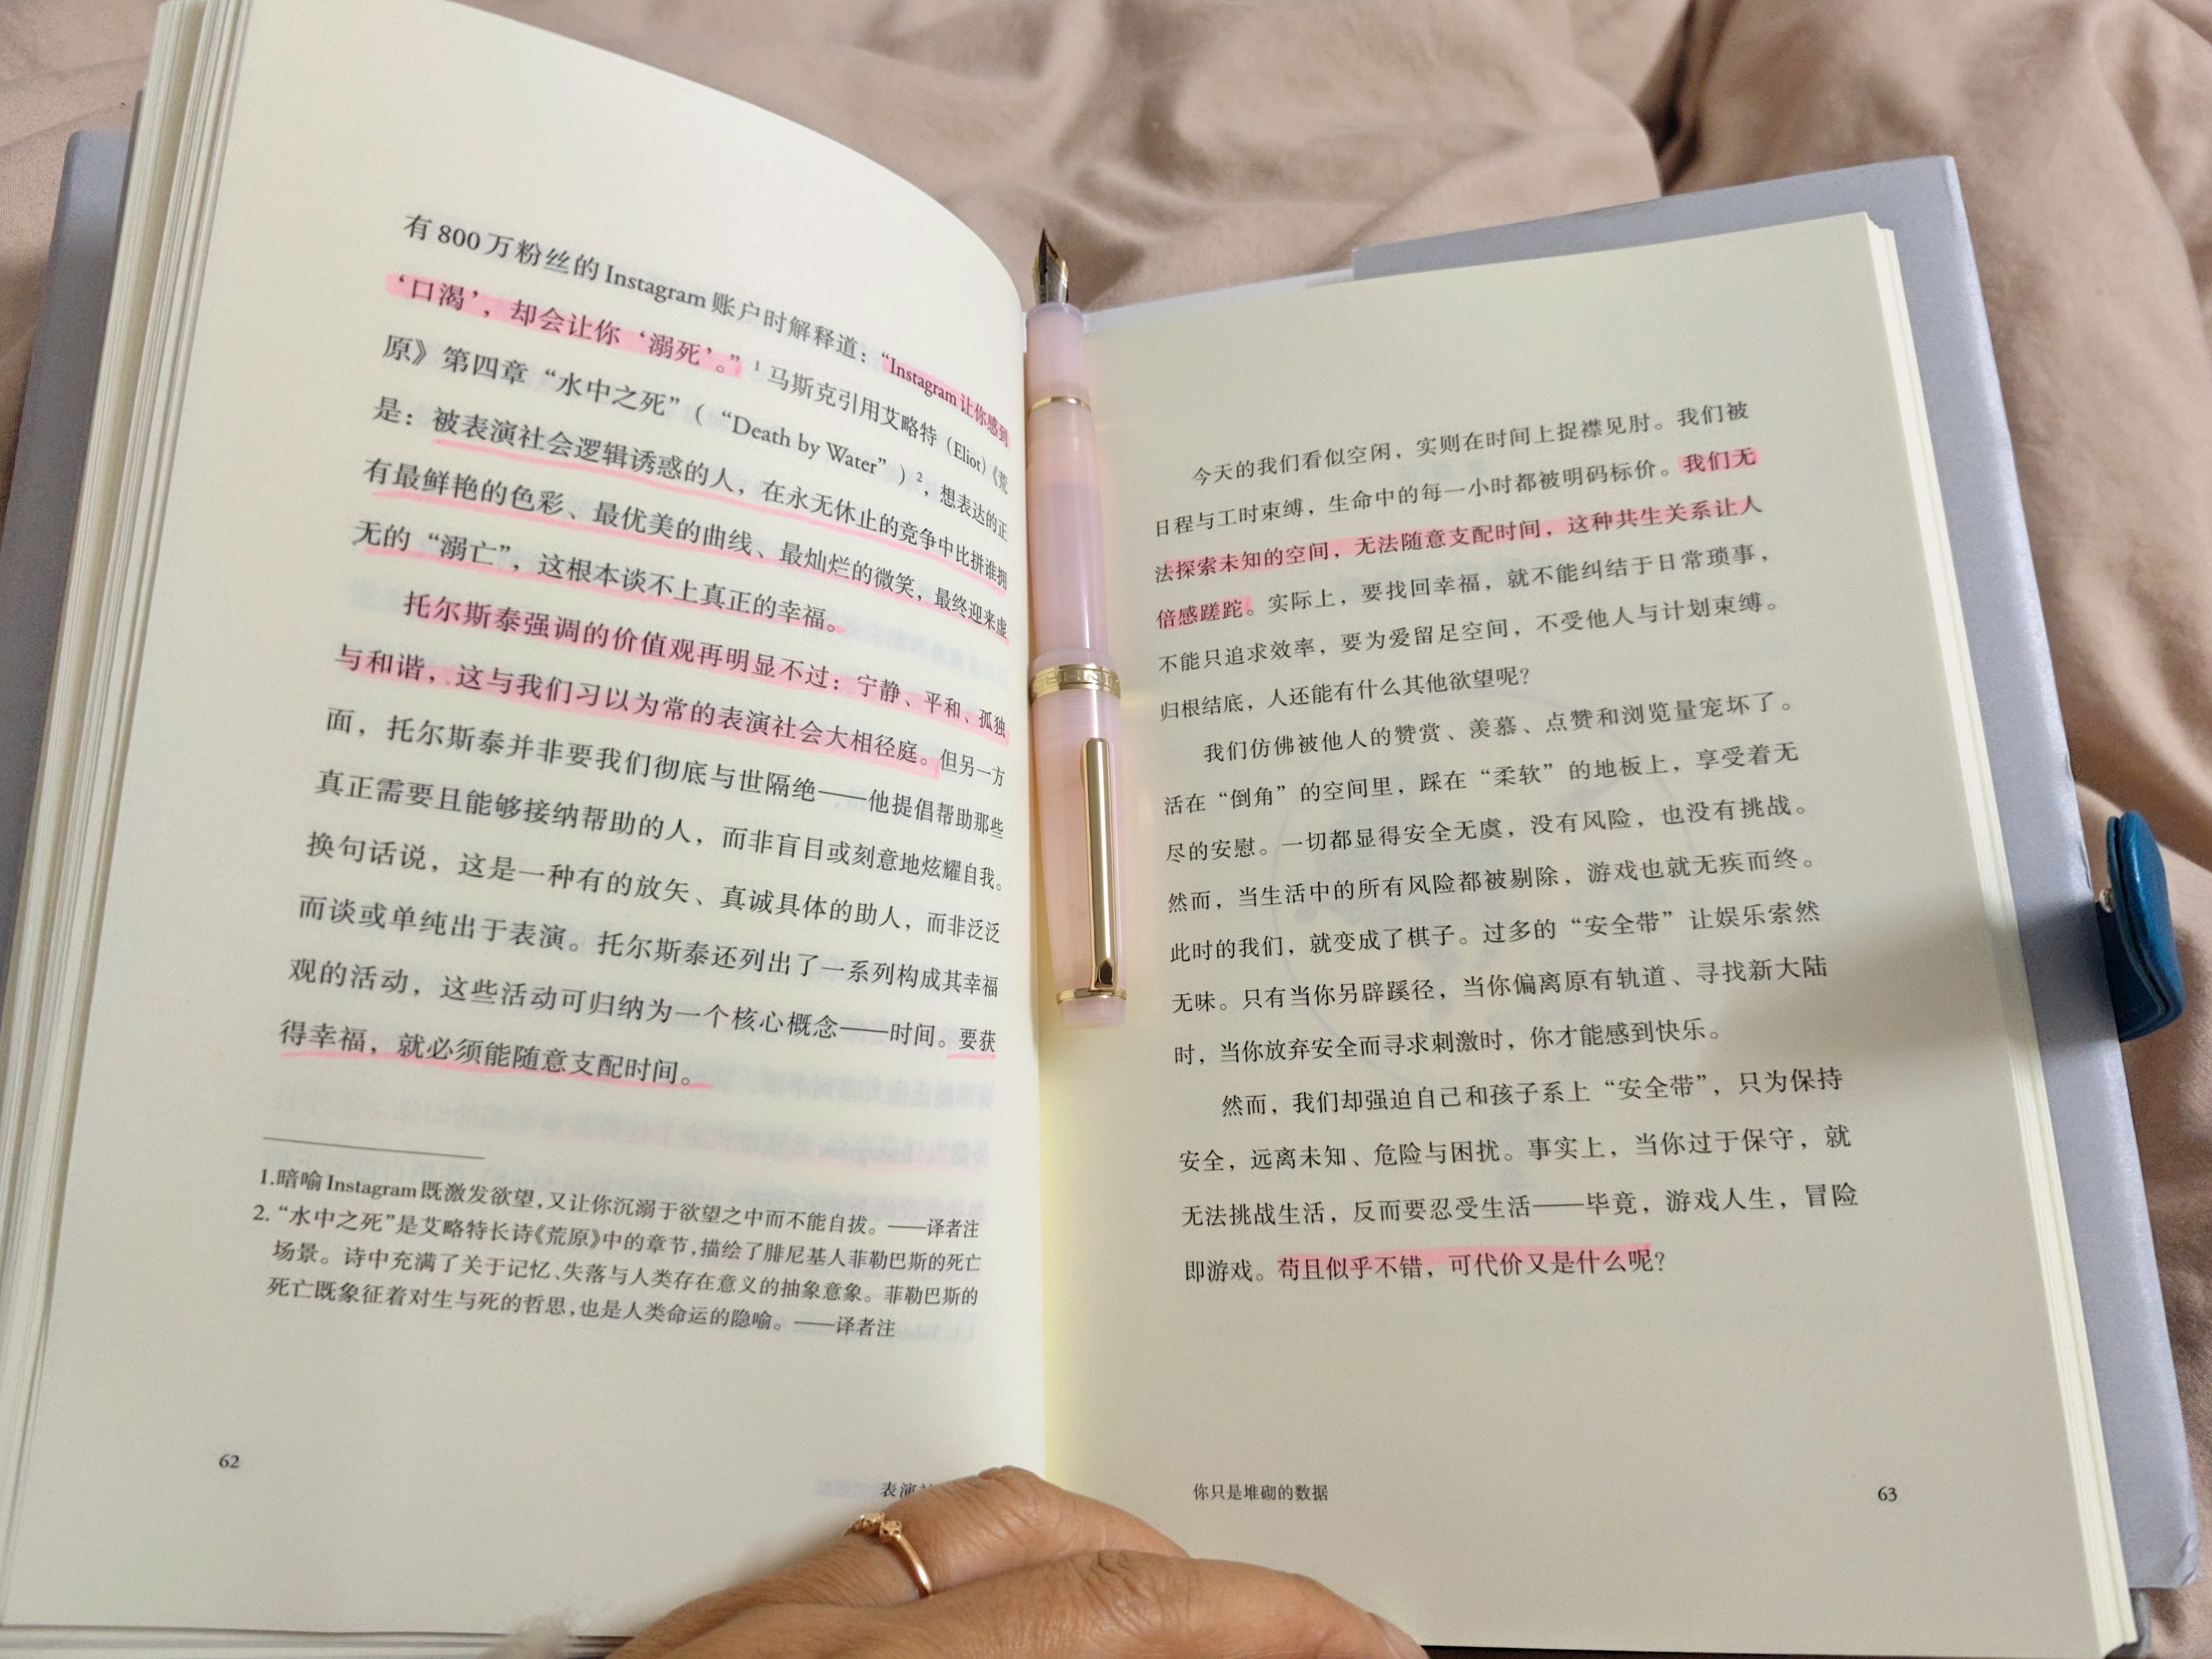 有 800 万粉丝的 Instagram 账户时解释道：“Instagram 让你感到
‘口渴’，却会让你‘溺死’。”1 马斯克引用艾略特（Eliot）《荒
原》第四章“水中之死”（“Death by Water”）2，想表达的正
是：被表演社会逻辑诱惑的人，在永无休止的竞争中比拼谁拥
有最鲜艳的色彩、最优美的曲线、最灿烂的微笑，最终迎来虚
无的“溺亡”，这根本谈不上真正的幸福。
托尔斯泰强调的价值观再明显不过：宁静、平和、孤独
与和谐，这与我们习以为常的表演社会大相径庭。但另一方
面，托尔斯泰并非要我们彻底与世隔绝——他提倡帮助那些
真正需要且能够接纳帮助的人，而非盲目或刻意地炫耀自我。
换句话说，这是一种有的放矢、真诚具体的助人，而非泛泛
而谈或单纯出于表演。托尔斯泰还列出了一系列构成其幸福
观的活动，这些活动可归纳为一个核心概念——时间。要获
得幸福，就必须能随意支配时间。
1.暗喻 Instagram 既激发欲望，又让你沉溺于欲望之中而不能自拔。——译者注
2.“水中之死”是艾略特长诗《荒原》中的章节，描绘了腓尼基人菲勒巴斯的死亡
场景。诗中充满了关于记忆、失落与人类存在意义的抽象意象。菲勒巴斯的
死亡既象征着对生与死的哲思，也是人类命运的隐喻。——译者注
62
表演
今天的我们看似空闲，实则在时间上捉襟见肘。我们被
日程与工时束缚，生命中的每一小时都被明码标价。我们无
法探索未知的空间，无法随意支配时间，这种共生关系让人
倍感蹉跎。实际上，要找回幸福，就不能纠结于日常琐事，
不能只追求效率，要为爱留足空间，不受他人与计划束缚。
归根结底，人还能有什么其他欲望呢？
我们仿佛被他人的赞赏、羡慕、点赞和浏览量宠坏了。
活在“倒角”的空间里，踩在“柔软”的地板上，享受着无
尽的安慰。一切都显得安全无虞，没有风险，也没有挑战。
然而，当生活中的所有风险都被剔除，游戏也就无疾而终。
此时的我们，就变成了棋子。过多的“安全带”让娱乐索然
无味。只有当你另辟蹊径，当你偏离原有轨道、寻找新大陆
时，当你放弃安全而寻求刺激时，你才能感到快乐。
然而，我们却强迫自己和孩子系上“安全带”，只为保持
安全，远离未知、危险与困扰。事实上，当你过于保守，就
无法挑战生活，反而要忍受生活——毕竟，游戏人生，冒险
即游戏。苟且似乎不错，可代价又是什么呢？
你只是堆砌的数据
63